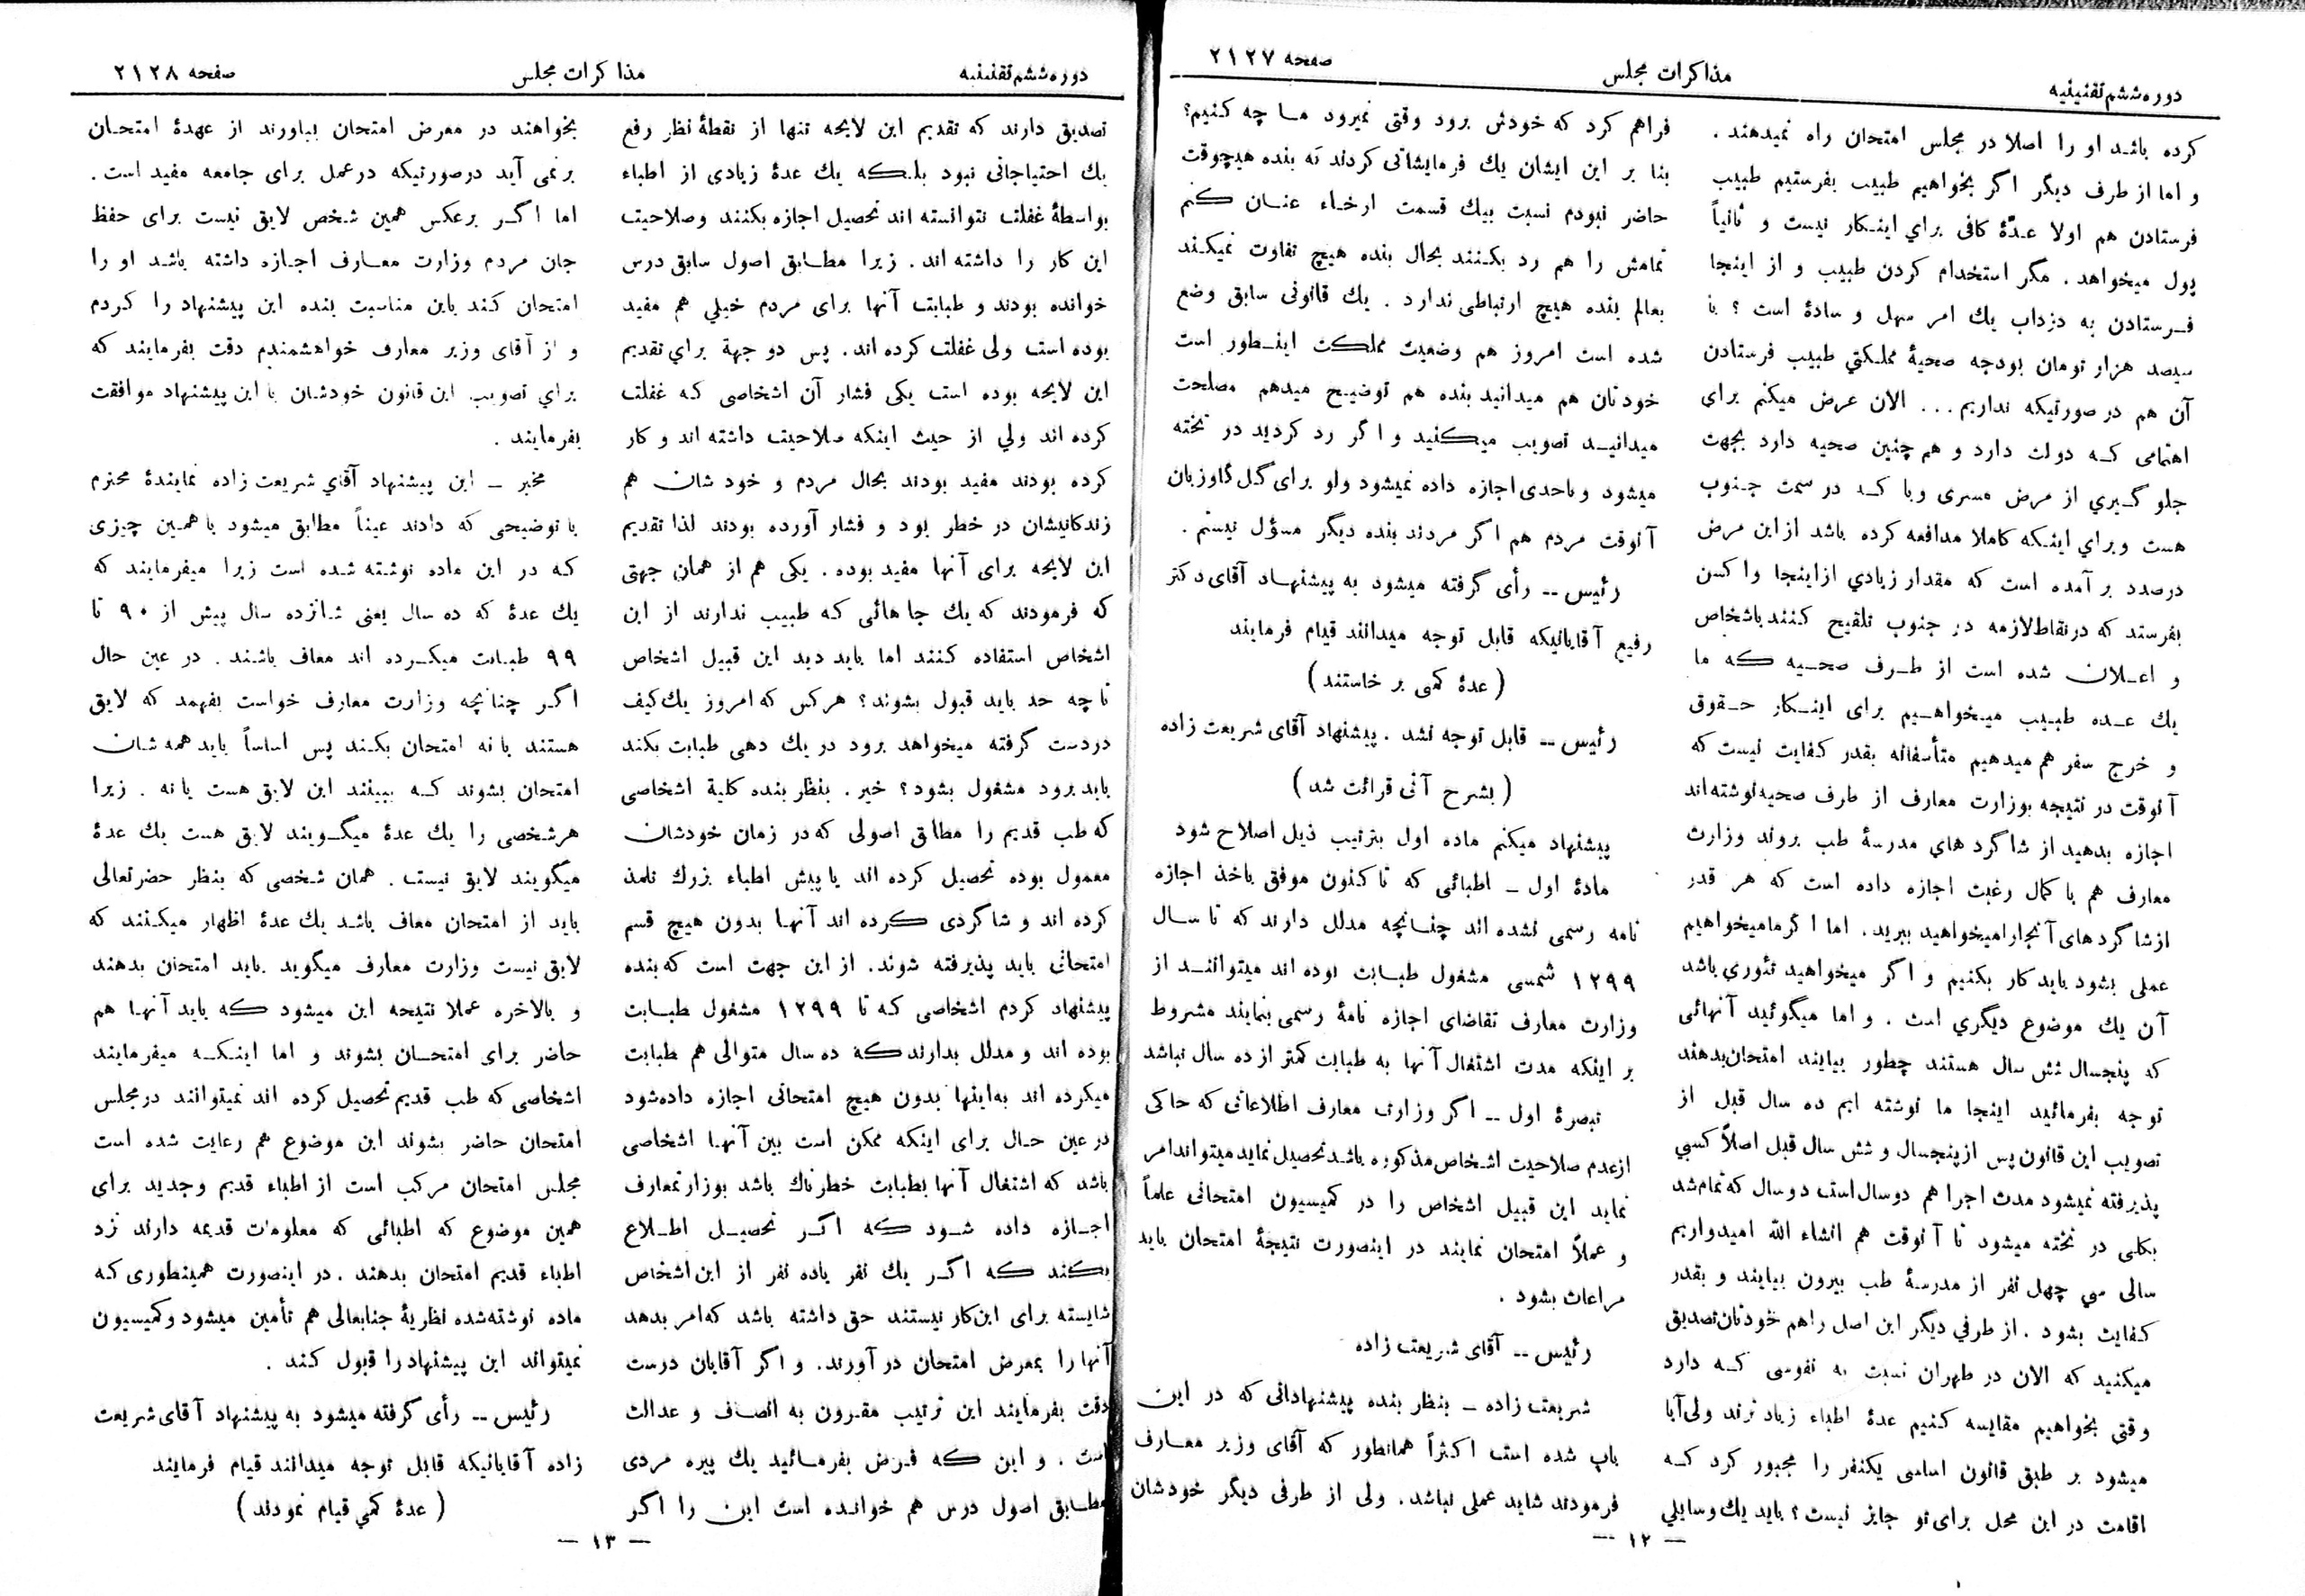 دوره ششم تقنینیه
مذاکرات مجلس
صفحه ۲۱۲۷
کرده باشد او را اصلا در مجلس امتحان راه نمیدهند .
و اما از طرف دیگر اگر بخواهیم طبیب بفرستیم طبیب
فرستادن هم اولا عدّۀ کافی برای اینکار نیست و ثانیاً
پول میخواهد . مگر استخدام کردن طبیب و از اینجا
فرستادن به دزداب یك امر سهل و سادۀ است ؟ با
سیصد هزار تومان بودجه صحیۀ مملکتی طبیب فرستادن
آن هم در صورتیکه نداریم ... الان عرض میکنم برای
اهتمامی که دولت دارد و هم چنین صحیه دارد بجهت
جلو گیری از مرض مسری وبا که در سمت جنوب
هست و برای اینکه کاملا مدافعه کرده باشد از این مرض
درصدد بر آمده است که مقدار زیادی از اینجا واکسن
بفرستد که در نقاط لازمه در جنوب تلقیح کنند باشخاص
و اعلان شده است از طرف صحیه که ما
یك عده طبیب میخواهیم برای اینکار حقوق
و خرج سفر هم میدهیم متأسفانه بقدر کفایت نیست که
آنوقت در نتیجه بوزارت معارف از طرف صحیه نوشته اند
اجازه بدهید از شاگرد های مدرسۀ طب بروند وزارت
معارف هم با کمال رغبت اجازه داده است که هر قدر
از شاگردهای آنجا را میخواهید ببرید. اما اگر ما میخواهیم
عملی بشود باید کار بکنیم و اگر میخواهید تئوری باشد
آن یك موضوع دیگری است . و اما میگوئید آنهائی
که پنجسال شش سال هستند چطور بیایند امتحان بدهند
توجه بفرمائید اینجا ما نوشته ایم ده سال قبل از
تصویب این قانون پس از پنجسال و شش سال قبل اصلاً کسی
پذیرفته نمیشود مدت اجرا هم دو سال است دو سال که تمام شد
بکلی در تخته میشود تا آنوقت هم انشاء الله امیدواریم
سالی سی چهل نفر از مدرسۀ طب بیرون بیایند و بقدر
کفایت بشود . از طرفی دیگر این اصل را هم خودتان تصدیق
میکنید که الان در طهران نسبت به نفوسی که دارد
وقتی بخواهیم مقایسه کنیم عدۀ اطباء زیاد ترند ولی آیا
میشود بر طبق قانون اساسی یکنفر را مجبور کرد که
اقامت در این محل برای تو جایز نیست ؟ باید یك وسایلی
فراهم کرد که خودش برود وقتی نمیرود ما چه کنیم؟
بنا بر این ایشان یك فرمایشاتی کردند که بنده هیچوقت
حاضر نبودم نسبت بیك قسمت ارخاء عنان کنم
تمامش را هم رد بکنند بحال بنده هیچ تفاوت نمیکند
بعالم بنده هیچ ارتباطی ندارد . یك قانونی سابق وضع
شده است امروز هم وضعیت مملکت اینطور است
خودتان هم میدانید بنده هم توضیح میدهم مصلحت
میدانید تصویب میکنید و اگر رد کردید در تخته
میشود و باحدی اجازه داده نمیشود ولو برای گل گاوزبان
آنوقت مردم هم اگر مردند بنده دیگر مسؤل نیستم .
رئیس -- رأی گرفته میشود به پیشنهاد آقای دکتر
رفیع آقایانیکه قابل توجه میدانند قیام فرمایند
( عدۀ کمی بر خاستند )
رئیس -- قابل توجه نشد . پیشنهاد آقای شریعت زاده
( بشرح آتی قرائت شد )
پیشنهاد میکنم ماده اول بترتیب ذیل اصلاح شود
مادۀ اول ـ اطبائی که تا کنون موفق باخذ اجازه
نامه رسمی نشده اند چنانچه مدلل دارند که تا سال
۱۲۹۹ شمسی مشغول طبابت بوده اند میتوانند از
وزارت معارف تقاضای اجازه نامۀ رسمی بنمایند مشروط
بر اینکه مدت اشتغال آنها به طبابت کمتر از ده سال نباشد
تبصرۀ اول -- اگر وزارت معارف اطلاعاتی که حاکی
از عدم صلاحیت اشخاص مذکوره باشد تحصیل نماید میتواند امر
نماید این قبیل اشخاص را در کمیسیون امتحانی علماً
و عملاً امتحان نمایند در اینصورت نتیجۀ امتحان باید
مراعات بشود .
رئیس -- آقای شریعت زاده
شریعت زاده ـ بنظر بنده پیشنهاداتی که در این
باب شده است اکثراً همانطور که آقای وزیر معارف
فرمودند شاید عملی نباشد . ولی از طرفی دیگر خودشان
— ۱۲ —
دوره ششم تقنینیه
مذاکرات مجلس
صفحه ۲۱۲۸
تصدیق دارند که تقدیم این لایحه تنها از نقطۀ نظر رفع
یك احتیاجاتی نبود بلکه یك عدۀ زیادی از اطباء
بواسطۀ غفلت نتوانسته اند تحصیل اجازه بکنند و صلاحیت
این کار را داشته اند . زیرا مطابق اصول سابق درس
خوانده بودند و طبابت آنها برای مردم خیلی هم مفید
بوده است ولی غفلت کرده اند. پس دو جهة برای تقدیم
این لایحه بوده است یکی فشار آن اشخاصی که غفلت
کرده اند ولی از حیث اینکه صلاحیت داشته اند و کار
کرده بودند مفید بودند بحال مردم و خود شان هم
زندگانیشان در خطر بود و فشار آورده بودند لذا تقدیم
این لایحه برای آنها مفید بوده . یکی هم از همان جهتی
که فرمودند که یك جاهائی که طبیب ندارند از این
اشخاص استفاده کنند اما باید دید این قبیل اشخاص
تا چه حد باید قبول بشوند ؟ هرکس که امروز یك کیف
در دست گرفته میخواهد برود در یك دهی طبابت بکند
باید برود مشغول بشود ؟ خیر . بنظر بنده کلیۀ اشخاصی
که طب قدیم را مطابق اصولی که در زمان خودشان
معمول بوده تحصیل کرده اند یا پیش اطباء بزرك تلمذ
کرده اند و شاگردی کرده اند آنها بدون هیچ قسم
امتحانی باید پذیرفته شوند . از این جهت است که بنده
پیشنهاد کردم اشخاصی که تا ۱۲۹۹ مشغول طبابت
بوده اند و مدلل بدارند که ده سال متوالی هم طبابت
میکرده اند به اینها بدون هیچ امتحانی اجازه داده شود
در عین حال برای اینکه ممکن است بین آنها اشخاصی
باشد که اشتغال آنها بطبابت خطرناك باشد بوزارتمعارف
اجازه داده شود که اگر تحصیل اطلاع
بکند که اگر یك نفر یا ده نفر از این اشخاص
شایسته برای این کار نیستند حق داشته باشد که امر بدهد
آنها را بمعرض امتحان در آورند. و اگر آقایان درست
دقت بفرمایند این ترتیب مقرون به انصاف و عدالت
است . و این که فرض بفرمائید یك پیره مردی
مطابق اصول درس هم خوانده است این را اگر
بخواهند در معرض امتحان بیاورند از عهدۀ امتحان
برنمی آید درصورتیکه در عمل برای جامعه مفید است .
اما اگر برعکس همین شخص لایق نیست برای حفظ
جان مردم وزارت معارف اجازه داشته باشد او را
امتحان کند باین مناسبت بنده این پیشنهاد را کردم
و از آقای وزیر معارف خواهشمندم دقت بفرمایند که
برای تصویب این قانون خودشان با این پیشنهاد موافقت
بفرمایند .
مخبر ـ این پیشنهاد آقای شریعت زاده نمایندۀ محترم
با توضیحی که دادند عیناً مطابق میشود با همین چیزی
که در این ماده نوشته شده است زیرا میفرمایند که
یك عدۀ که ده سال یعنی شانزده سال پیش از ۹۰ تا
۹۹ طبابت میکرده اند معاف باشند . در عین حال
اگر چنانچه وزارت معارف خواست بفهمد که لایق
هستند یا نه امتحان بکند پس اساساً باید همه شان
امتحان بشوند که ببینند این لایق هست یا نه . زیرا
هرشخصی را یك عدۀ میگویند لایق هست یك عدۀ
میگویند لایق نیست . همان شخصی که بنظر حضرتعالی
باید از امتحان معاف باشد یك عدۀ اظهار میکنند که
لایق نیست وزارت معارف میگوید باید امتحان بدهند
و بالاخره عملا نتیجه این میشود که باید آنها هم
حاضر برای امتحان بشوند و اما اینکه میفرمایند
اشخاصی که طب قدیم تحصیل کرده اند نمیتوانند در مجلس
امتحان حاضر بشوند این موضوع هم رعایت شده است
مجلس امتحان مرکب است از اطباء قدیم و جدید برای
همین موضوع که اطبائی که معلومات قدیمه دارند نزد
اطباء قدیم امتحان بدهند . در اینصورت همینطوری که
ماده نوشته شده نظریۀ جنابعالی هم تأمین میشود و کمیسیون
نمیتواند این پیشنهاد را قبول کند .
رئیس -- رأی گرفته میشود به پیشنهاد آقای شریعت
زاده آقایانیکه قابل توجه میدانند قیام فرمایند
( عدۀ کمی قیام نمودند )
— ۱۳ —